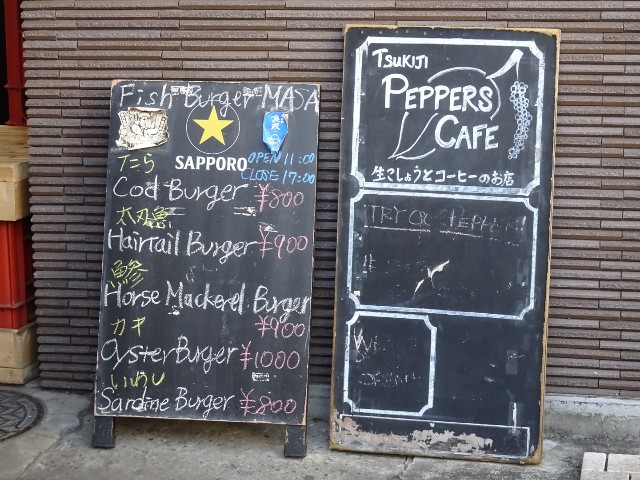 Fish Burger MASA
SAPPORO
OPEN 11:00
CLOSE 17:00
たら
Cod Burger ¥800
太刀魚
Hairtail Burger ¥900
鯵
Horse Mackerel Burger
¥900
カキ
Oyster Burger ¥1000
いわし
Sardine Burger ¥800
TSUKIJI
PEPPERS
CAFE
生こしょうとコーヒーのお店
TRY OUR PEPPER!